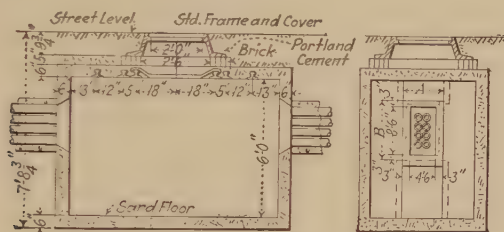 Street Level
Std. Frame and Cover
2'0"
2'6"
Brick
Portland
Cement
6"
5"
9 3/4"
6" 3" 12" 5" 18" 18" 5" 12" 13" 6"
7'8 3/4"
6'0"
Sand Floor
6"
3"
A
B
8'6"
3" 4'6" 3"